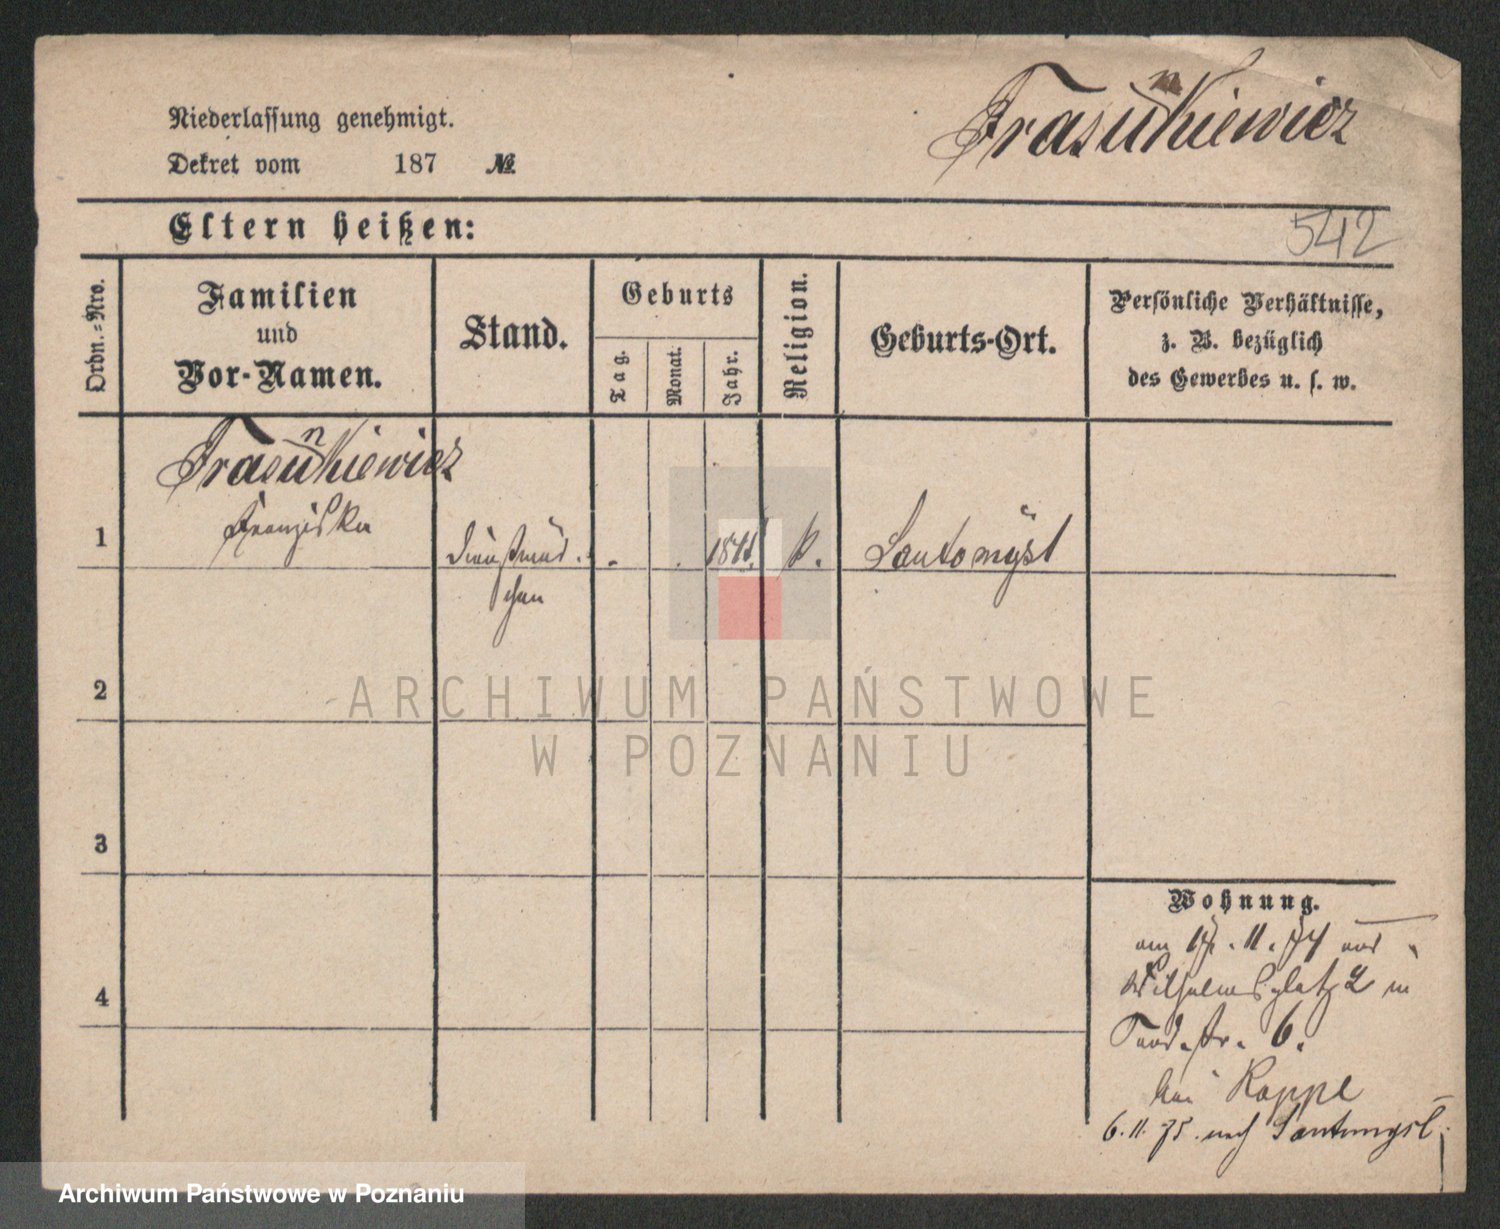 Niederlassung genehmigt.
Dekret vom 187 №
Frasunkiewicz
542
Eltern heißen:
Ordn.=Nro.
Familien
und
Vor-Namen.
Stand.
Geburts
Tag.
Monat.
Jahr.
Religion.
Geburts-Ort.
Persönliche Verhältnisse,
z. B. bezüglich
des Gewerbes u. s. w.
Frasunkiewicz
1 Franziska Dienstmäd- k. Santomyśl
chen
2
3
4
ARCHIWUM PAŃSTWOWE
W POZNANIU
Wohnung.
am 17. 11. 74 aus
Wilhelmsplatz 2 in
str. 6.
bei Kappe
6. 11. 75. nach Santomysl.
Archiwum Państwowe w Poznaniu